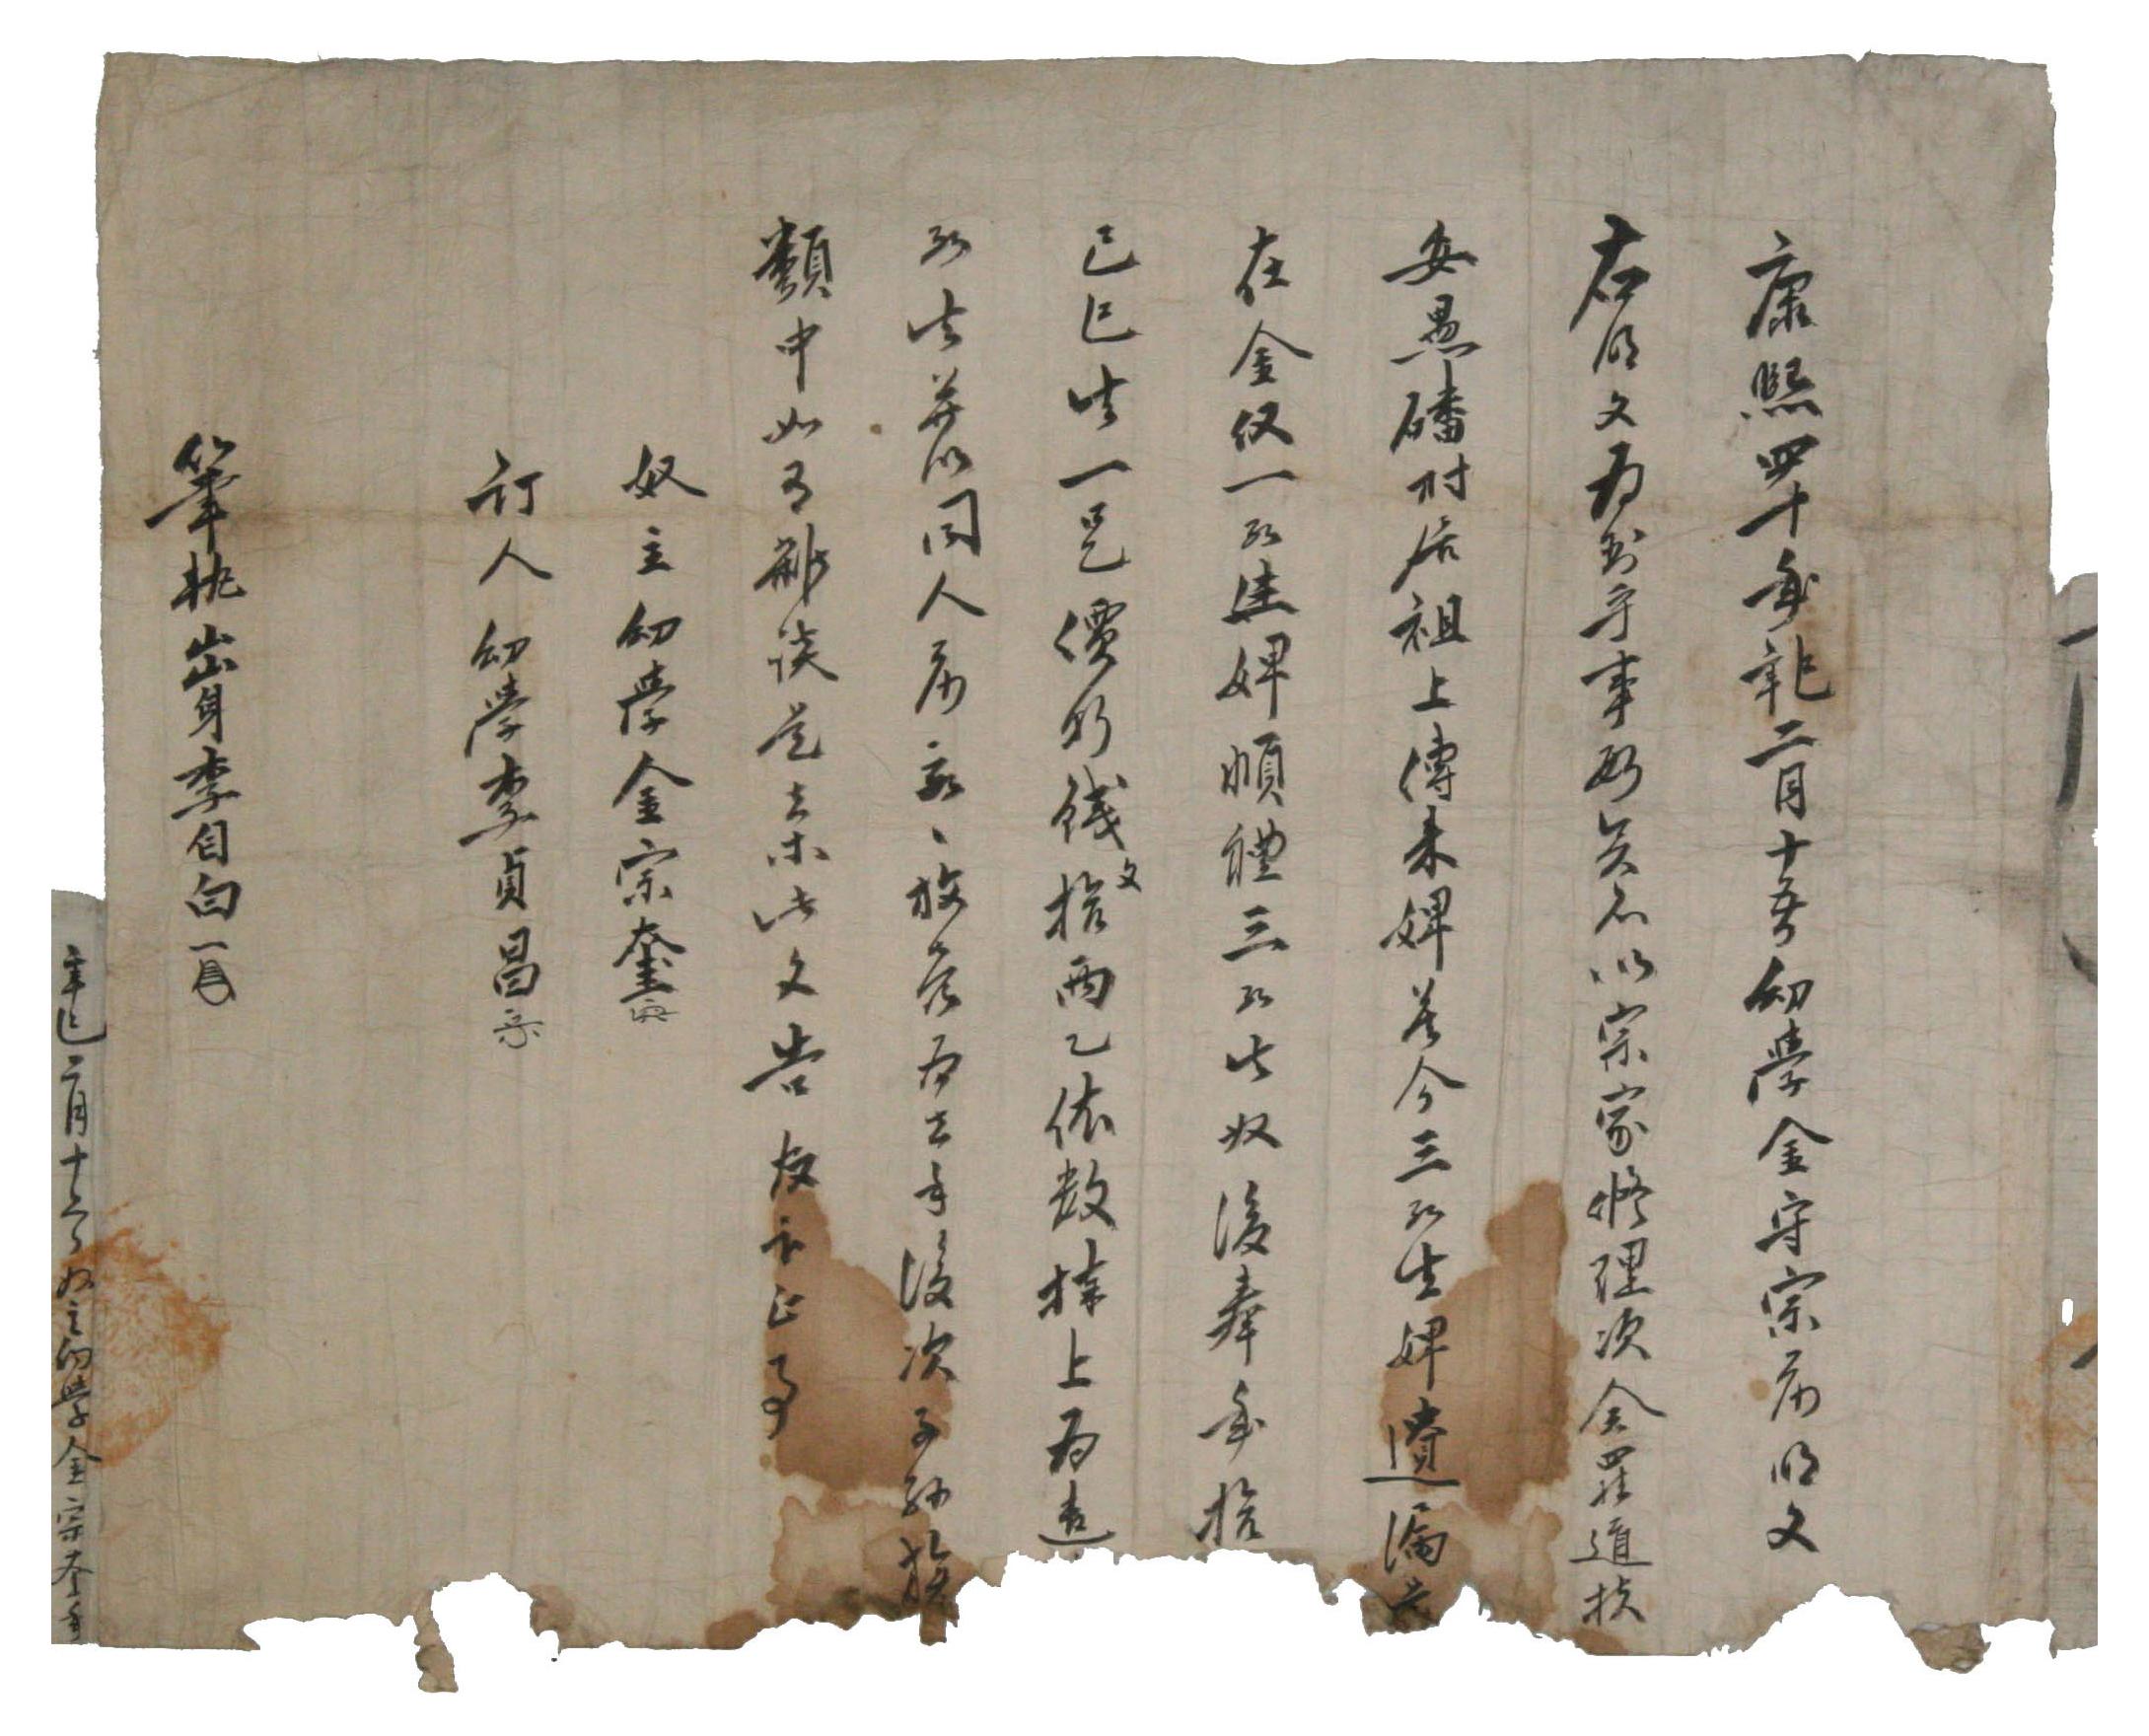 康熙四十年辛巳二月十五日幼學金守宗前明文
右明文爲臥乎事段矣身以宗家修理次全羅道扶
安愚磻村居祖上傳來婢 今三所生婢遺漏
在金仅一所生婢順禮三所生奴後奉年拾
己巳生一口乙價折錢文拾兩乙依數捧上爲遣
所生幷以同人前永永放賣爲去乎後次子孫族
類中如有雜談是去等此文告官卞正事
奴主幼學金宗奎
訂人幼學李貞昌
筆執出身李自白
辛巳二月十六日奴主幼學金宗奎